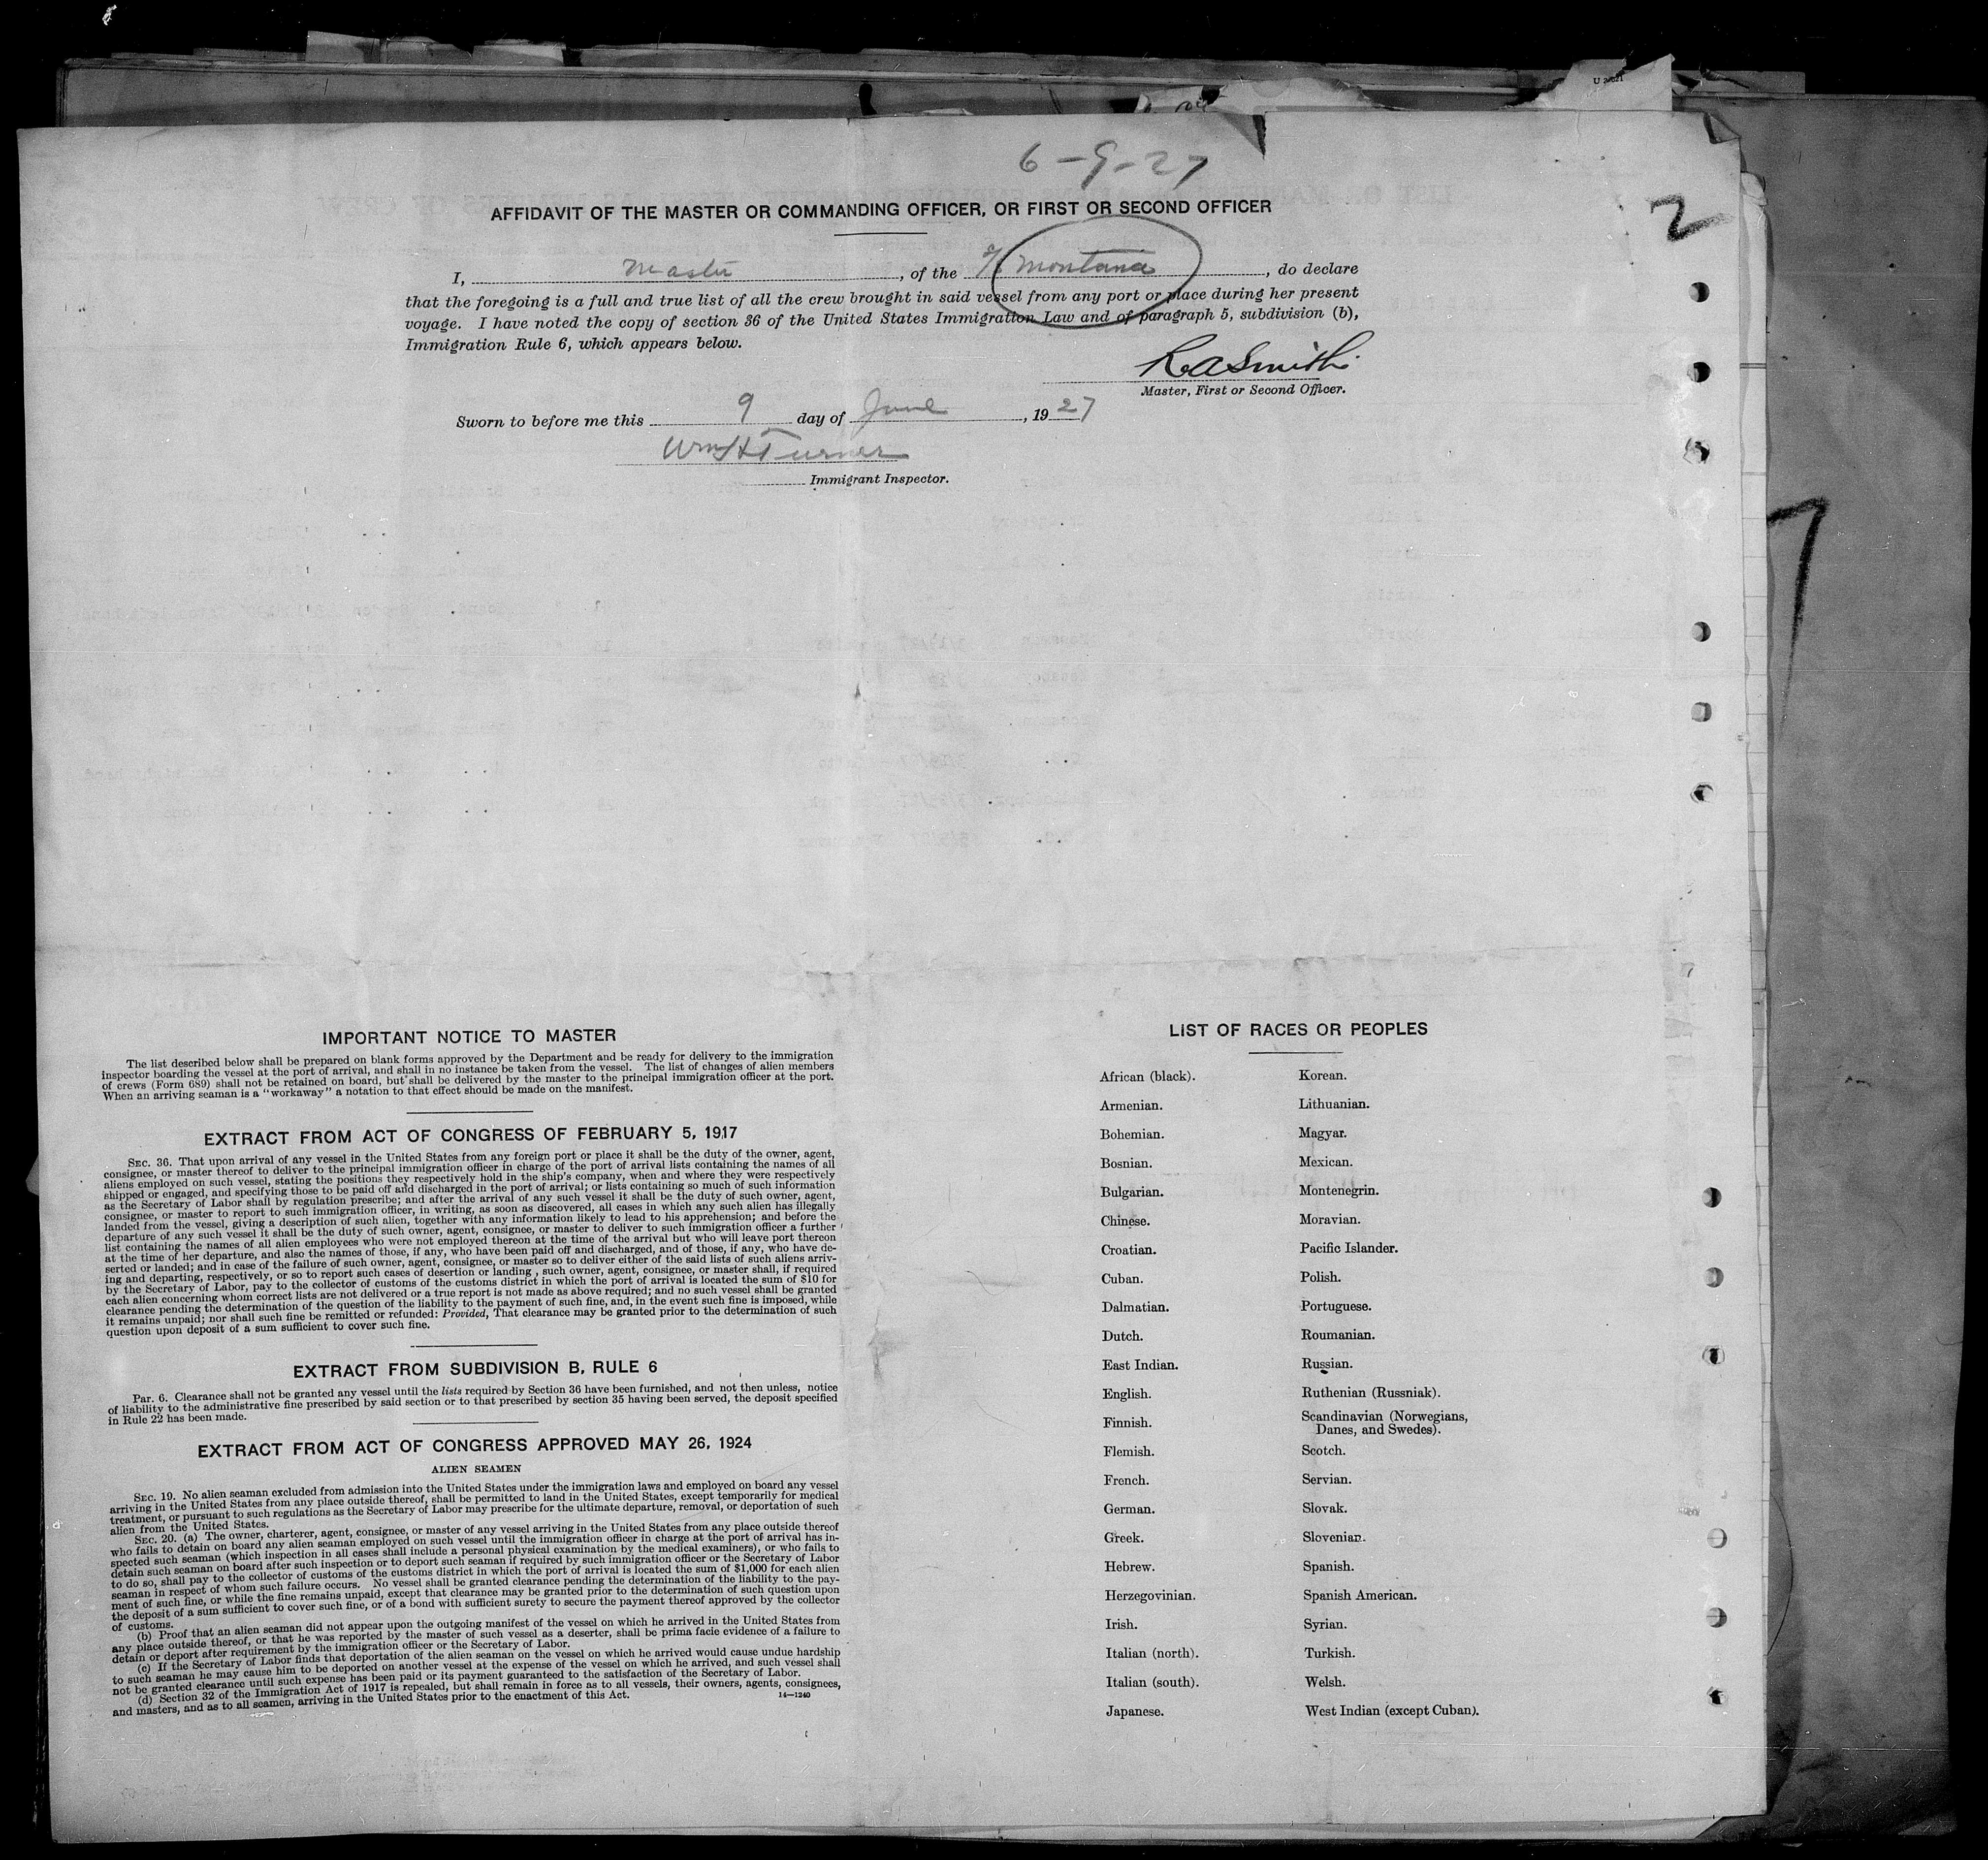 6-9-27
2
AFFIDAVIT OF THE MASTER OR COMMANDING OFFICER, OR FIRST OR SECOND OFFICER
I, Master, of the S/S Montana, do declare
that the foregoing is a full and true list of all the crew brought in said vessel from any port or place during her present
voyage. I have noted the copy of section 36 of the United States Immigration Law and of paragraph 5, subdivision (b),
Immigration Rule 6, which appears below.
R A Smith
Master, First or Second Officer.
Sworn to before me this 9 day of June, 1927
Wm H Turner
Immigrant Inspector.
IMPORTANT NOTICE TO MASTER
The list described below shall be prepared on blank forms approved by the Department and be ready for delivery to the immigration
inspector boarding the vessel at the port of arrival, and shall in no instance be taken from the vessel. The list of changes of alien members
of crews (Form 689) shall not be retained on board, but shall be delivered by the master to the principal immigration officer at the port.
When an arriving seaman is a "workaway" a notation to that effect should be made on the manifest.
EXTRACT FROM ACT OF CONGRESS OF FEBRUARY 5, 1917
SEC. 36. That upon arrival of any vessel in the United States from any foreign port or place it shall be the duty of the owner, agent,
consignee, or master thereof to deliver to the principal immigration officer in charge of the port of arrival lists containing the names of all
aliens employed on such vessel, stating the positions they respectively hold in the ship's company, when and where they were respectively
shipped or engaged, and specifying those to be paid off and discharged in the port of arrival; or lists containing so much of such information
as the Secretary of Labor shall by regulation prescribe; and after the arrival of any such vessel it shall be the duty of such owner, agent,
consignee, or master to report to such immigration officer, in writing, as soon as discovered, all cases in which any such alien has illegally
landed from the vessel, giving a description of such alien, together with any information likely to lead to his apprehension; and before the
departure of any such vessel it shall be the duty of such owner, agent, consignee, or master to deliver to such immigration officer a further
list containing the names of all alien employees who were not employed thereon at the time of the arrival but who will leave port thereon
at the time of her departure, and also the names of those, if any, who have been paid off and discharged, and of those, if any, who have de-
serted or landed; and in case of the failure of such owner, agent, consignee, or master so to deliver either of the said lists of such aliens arriv-
ing and departing, respectively, or so to report such cases of desertion or landing, such owner, agent, consignee, or master shall, if required
by the Secretary of Labor, pay to the collector of customs of the customs district in which the port of arrival is located the sum of $10 for
each alien concerning whom correct lists are not delivered or a true report is not made as above required; and no such vessel shall be granted
clearance pending the determination of the question of the liability to the payment of such fine, and, in the event such fine is imposed, while
it remains unpaid; nor shall such fine be remitted or refunded: Provided, That clearance may be granted prior to the determination of such
question upon deposit of a sum sufficient to cover such fine.
EXTRACT FROM SUBDIVISION B, RULE 6
Par. 6. Clearance shall not be granted any vessel until the lists required by Section 36 have been furnished, and not then unless, notice
of liability to the administrative fine prescribed by said section or to that prescribed by section 35 having been served, the deposit specified
in Rule 22 has been made.
EXTRACT FROM ACT OF CONGRESS APPROVED MAY 26, 1924
ALIEN SEAMEN
SEC. 19. No alien seaman excluded from admission into the United States under the immigration laws and employed on board any vessel
arriving in the United States from any place outside thereof, shall be permitted to land in the United States, except temporarily for medical
treatment, or pursuant to such regulations as the Secretary of Labor may prescribe for the ultimate departure, removal, or deportation of such
alien from the United States.
SEC. 20. (a) The owner, charterer, agent, consignee, or master of any vessel arriving in the United States from any place outside thereof
who fails to detain on board any alien seaman employed on such vessel until the immigration officer in charge at the port of arrival has in-
spected such seaman (which inspection in all cases shall include a personal physical examination by the medical examiners), or who fails to
detain such seaman on board after such inspection or to deport such seaman if required by such immigration officer or the Secretary of Labor
to do so, shall pay to the collector of customs of the customs district in which the port of arrival is located the sum of $1,000 for each alien
seaman in respect of whom such failure occurs. No vessel shall be granted clearance pending the determination of the liability to the pay-
ment of such fine, or while the fine remains unpaid, except that clearance may be granted prior to the determination of such question upon
the deposit of a sum sufficient to cover such fine, or of a bond with sufficient surety to secure the payment thereof approved by the collector
of customs.
(b) Proof that an alien seaman did not appear upon the outgoing manifest of the vessel on which he arrived in the United States from
any place outside thereof, or that he was reported by the master of such vessel as a deserter, shall be prima facie evidence of a failure to
detain or deport after requirement by the immigration officer or the Secretary of Labor.
(c) If the Secretary of Labor finds that deportation of the alien seaman on the vessel on which he arrived would cause undue hardship
to such seaman he may cause him to be deported on another vessel at the expense of the vessel on which he arrived, and such vessel shall
not be granted clearance until such expense has been paid or its payment guaranteed to the satisfaction of the Secretary of Labor.
(d) Section 32 of the Immigration Act of 1917 is repealed, but shall remain in force as to all vessels, their owners, agents, consignees,
and masters, and as to all seamen, arriving in the United States prior to the enactment of this Act.
14—1240
LIST OF RACES OR PEOPLES
African (black).
Armenian.
Bohemian.
Bosnian.
Bulgarian.
Chinese.
Croatian.
Cuban.
Dalmatian.
Dutch.
East Indian.
English.
Finnish.
Flemish.
French.
German.
Greek.
Hebrew.
Herzegovinian.
Irish.
Italian (north).
Italian (south).
Japanese.
Korean.
Lithuanian.
Magyar.
Mexican.
Montenegrin.
Moravian.
Pacific Islander.
Polish.
Portuguese.
Roumanian.
Russian.
Ruthenian (Russniak).
Scandinavian (Norwegians,
Danes, and Swedes).
Scotch.
Servian.
Slovak.
Slovenian.
Spanish.
Spanish American.
Syrian.
Turkish.
Welsh.
West Indian (except Cuban).